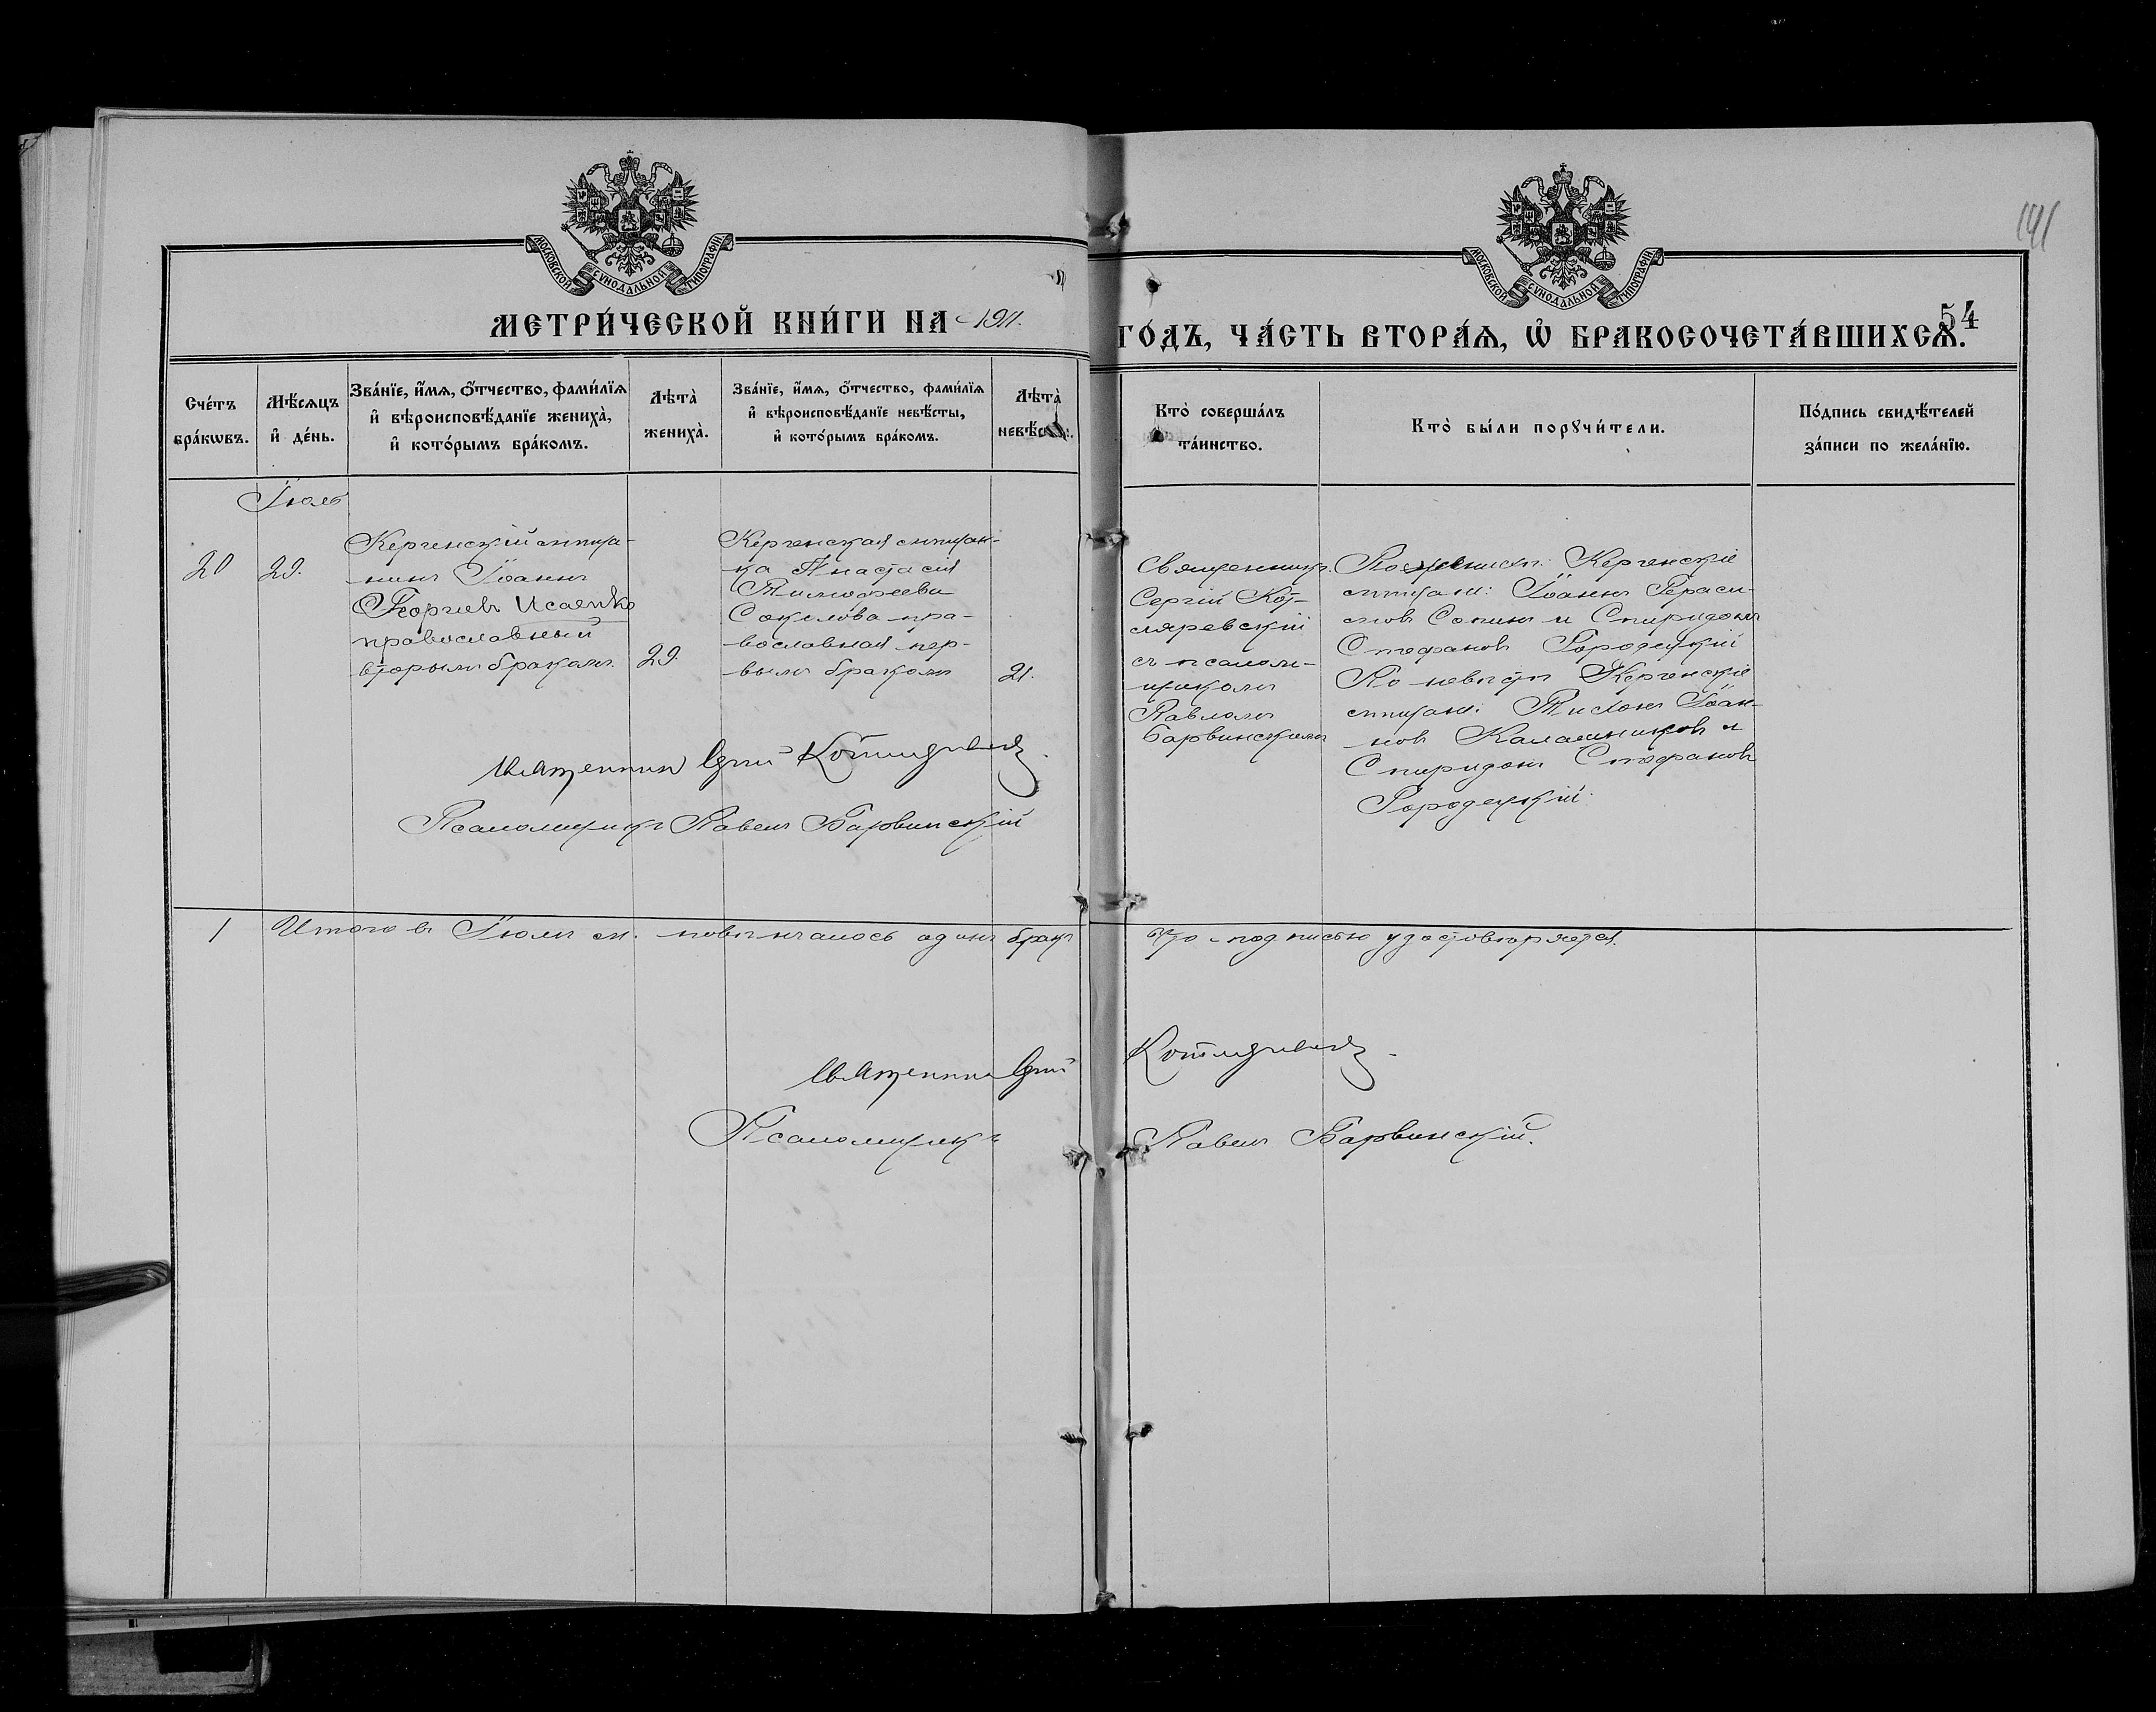 141
МОСКОВСКОЙ СѴНОДАЛЬНОЙ ТИПОГРАФІИ.
МОСКОВСКОЙ СѴНОДАЛЬНОЙ ТИПОГРАФІИ.
54
МЕТРИ́ЧЕСКОЙ КНИ́ГИ НА 1911. ГО́ДЪ, ЧА́СТЬ ВТОРА́Ѧ, Ѡ҆ БРАКОСОЧЕТА́ВШИХСѦ.
Сче́тъ
бра́кѡвъ.
Мѣ́сѧцъ
и҆ де́нь.
Зва́нїе, и҆́мѧ, о҆́тчество, фами́лїѧ
и҆ вѣроисповѣ́данїе жениха̀,
и҆ кото́рымъ бра́комъ.
Лѣ́та̀
жениха̀.
Зва́нїе, и҆́мѧ, о҆́тчество, фами́лїѧ
и҆ вѣроисповѣ́данїе невѣ́сты,
и҆ кото́рымъ бра́комъ.
Лѣ́та̀
невѣ́сты.
Кто̀ соверша́лъ
та́инство.
Кто̀ бы́ли порꙋчи́тели.
По́дпись свидѣ́телей
за́писи по жела́нїю.
Іюль
20
29.
Керченскій мѣща-
нинъ Іоаннъ
Георгіевъ Исаенко
православный
вторымъ бракомъ.
29.
Керченская мѣщан-
ка Анастасія
Тимофеева
Соколова пра-
вославная пер-
вымъ бракомъ
21.
Священникъ
Сергій Кот-
ляревскій
съ псалом-
щикомъ
Павломъ
Барвинскимъ
По женихѣ: Керченскіе
мѣщане: Іоаннъ Гераси-
мовъ Сопинъ и Спиридонъ
Стефановъ Городецкій
По невѣстѣ Керченскіе
мѣщане: Тихонъ Іоан-
новъ Калашниковъ и
Спиридонъ Стефановъ
Городецкій.
Священникъ Сергій Котляревскій.
Псаломщикъ Павелъ Барвинскій
1 Итого въ Іюлѣ м. повѣнчалось одинъ бракъ что подписью удостовѣряется.
Священникъ Сергій Котляревскій.
Псаломщикъ Павелъ Барвинскій.